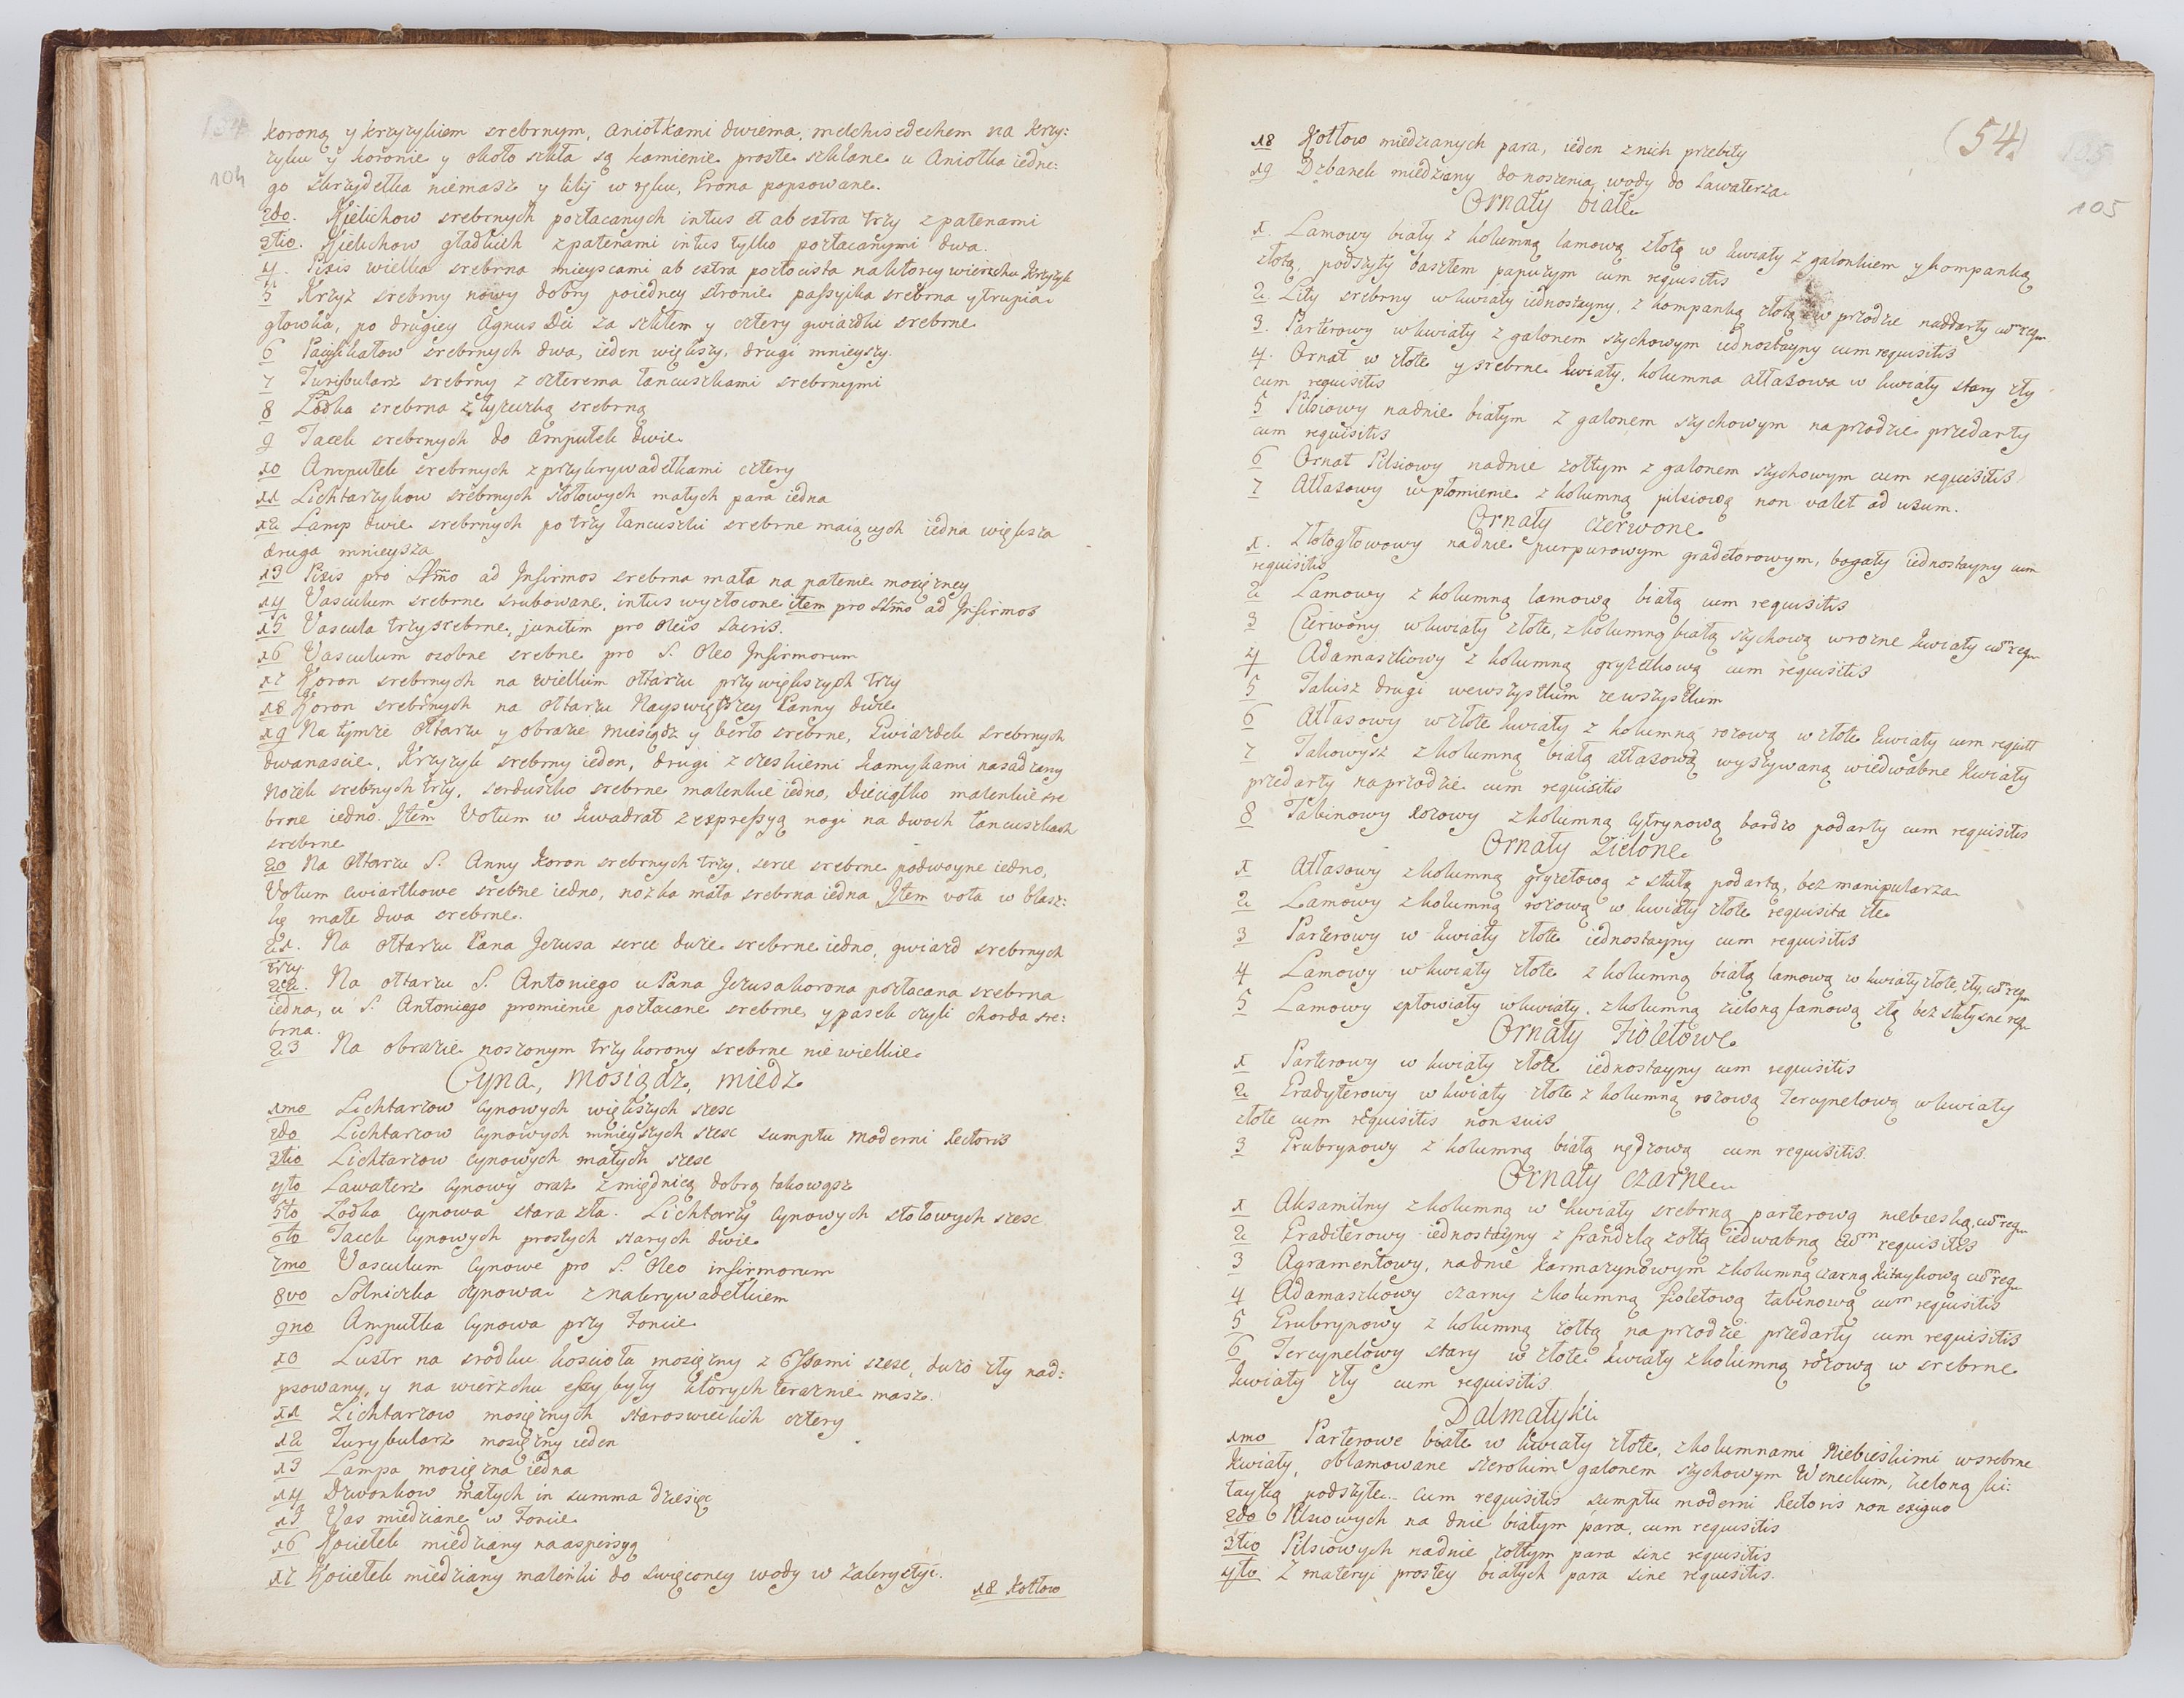 104
koroną y krzyzykiem srebrnym, aniołkami dwiema, melchisedechem na krzy:
zyku y koronie y około szkła są kamienie proste szklane u Aniołka iedne:
go skrzydełka niemasz y lilij w ręku, Grona popsowane.
2do. Kielichow srebrnych pozłacanych intus et ab extra trzy z patenami
3tio. Kielichow gładkich z patenami intus tylko pozłacanymi dwa.
4. Pixis wielka srebrna mieyscami ab extra pozłocista naktorey wierzchu Krzyzyk
5 Krzyz srebrny nowy dobry poiedney stronie passyika srebrna y trupia
głowka, po drugiey Agnus Dei za szkłem y cztery gwiazdki srebrne
6 Pacyfikałow srebrnych dwa, ieden większy, drugi mnieyszy.
7 Turybularz srebrny z czterema łancuszkami srebrnymi
8 Łodka srebrna z łyzeczką srebrną
9 Tacek srebrnych do Ampułek dwie
10 Ampułek srebrnych z przykrywadełkami cztery
11 Lichtarzykow srebrnych stołowych małych para iedna
12 Lamp dwie srebrnych po trzy łancuszki srebrne maiących iedna większa
druga mnieysza
13 Pixis pro SSmo ad Infirmos srebrna mała na patenie mosięzney
14 Vasculum srebrne srubowane, intus wyzłocone item pro SSmo ad Infirmos
15 Vascula trzy srebrne, junctim pro Oleis Sacris.
16 Vasculum osobne srebne pro S. Oleo Infirmorum
17 Koron srebrnych na wielkim ołtarzu przy większych trzy
18 Koron srebrnych na Ołtarzu Nayswiętszey Panny dwie
19 Na tymze Ołtarzu y obrazie miesiądz y berło srebrne, Gwiazdek srebrnych
dwanascie, Krzyzyk srebrny ieden, drugi z czeskiemi kamykami nasadzany
Nozek srebnych trzy, serduszko srebrne malenkie iedno, Dzieciątko malenkie sre
brne iedno. Item Votum w kwadrat z expressyą nogi na dwoch łancuszkach
srebrne
20 Na Ołtarzu S. Anny Koron srebrnych trzy, serce srebrne podwoyne iedno,
Votum cwiartkowe srebrne iedno, nozka mała srebrna iedna Item vota w blasz:
kę małe dwa srebrne.
21. Na ołtarzu Pana Jezusa serce duze srebrne iedno, gwiazd srebrnych
trzy.
22. Na ołtarzu S. Antoniego u Pana Jezusa korona pozłacana srebrna
iedna, u S. Antoniego promienie pozłacane srebrne, y pasek czyli chorda sre:
brna.
23 Na obrazie noszonym trzy korony srebrne nie wielkie
Cyna, mosiądz, miedz
1mo Lichtarzow cynowych większych szesc
2do Lichtarzow cynowych mnieyszych szesc sumptu moderni Rectoris
3tio Lichtarzow cynowych małych szesc
4to Lawaterz cynowy oraz z miednicą dobrą takowąsz
5to Łodka cynowa stara zła. Lichtarzy cynowych stołowych szesc
6to Tacek cynowych prostych starych dwie
7mo Vasculum cynowe pro S. Oleo infirmorum
8vo Solniczka cynowa z nakrywadełkiem
9no Ampułka cynowa przy Foncie
10 Lustr na srodku koscioła mosięzny z Essami szesc, duzo zły nad:
psowany, y na wierzchu essy były ktorych teraz nie masz.
11 Lichtarzow mosięznych staroswieckich cztery
12 Turybularz mosięzny ieden
13 Lampa mosięzna iedna
14 Dzwonkow małych in summa dziesięc
15 Vas miedziane w Foncie
16 Kociełek miedziany na aspersyą
17 Kociełek miedziany malenki do swięconey wody w Zakrystyi.
18 Kotłow
(54.)
105
18 Kotłow miedzianych para, ieden z nich przebity
19 Dzbanek miedziany do noszenia wody do Lawaterza
Ornaty białe
1. Lamowy biały z kolumną lamową złotą w kwiaty z galonkiem y kompanką
złotą, podszyty basztem papuzym cum requisitis
2 Lity srebrny w kwiaty iednostayny, z kompanką złotą w przodzie naddarty cum req
3. Parterowy w kwiaty z galonem szychowym iednostayny cum requisitis
4. Ornat w złote y srebrne kwiaty, kolumna atłasowa w kwiaty stary zły
cum requisitis
5 Pilsiowy nadnie białym z galonem szychowym naprzodzie przedarty
cum requisitis
6 Ornat Pilsiowy nadnie zołtym z galonem szychowym cum requisitis
7 Atłasowy w płomienie z kolumną pilsiową non valet ad usum.
Ornaty czerwone
1. Złotogłowowy nadnie purpurowym gradetorowym, bogaty iednostayny cum
requisitis
2 Lamowy z kolumną lamową białą cum requisitis
3 Czerwony w kwiaty złote, z kolumną białą szychową w rozne kwiaty cum req
4 Adamaszkowy z kolumną gryzetkową cum requisitis
5 Takisz drugi wewszystkim zewszystkim
6 Atłasowy w złote kwiaty z kolumną rozową w złote kwiaty cum requit
7 Takowysz z kolumną białą atłasową wyszywaną wiedwabne kwiaty
przedarty naprzodzie cum requisitis
8 Tabinowy Rozowy z kolumną cytrynową bardzo podarty cum requisitis
Ornaty Zielone
1 Atłasowy z kolumną gryzetową z stułą podartą, bez manipularza
2 Lamowy z kolumną rozową w kwiaty złote requisita złe
3 Parterowy w kwiaty złote iednostayny cum requisitis
4 Lamowy w kwiaty złote z kolumną białą lamową w kwiaty złote, zły, cum req
5 Lamowy spłowiały w kwiaty, z kolumną zieloną lamową złą bez stuły sine req
Ornaty Fioletowe
1 Parterowy w kwiaty złote iednostayny cum requisitis
2 Gradyterowy w kwiaty złote z kolumną rozową Tercynelową w kwiaty
złote cum requisitis non suis
3 Grubrynowy z kolumną białą cum requisitis.
Ornaty czarne
1 Aksamitny z kolumną w kwiaty srebrną parterową niebieską, cum req
2 Graditerowy iednostayny z frandzlą zołtą iedwabną cum requisitis
3 Agramentowy, nadnie karmazynowym z kolumną czarną kitaykową cum req
4 Adamaszkowy czarny z kolumną fioletową tabinową cum requisitis
5 Grubrynowy z kolumną zołtą na przodzie przedarty cum requisitis
6 Tercynelowy stary w złote kwiaty z kolumną rozową w srebrne
kwiaty zły cum requisitis.
Dalmatyki
1mo Parterowe białe w kwiaty złote, z kolumnami Niebieskimi w srebrne
kwiaty, oblamowane szerokim galonem szychowym Weneckim, zieloną ki:
tayką podszyte. cum requisitis sumptu moderni Rectoris non exiguo
2do Pilsiowych na dnie białym para, cum requisitis
3tio Pilsiowych nadnie zołtym para sine requisitis
4to Z materyi prostey białych para sine requisitis.